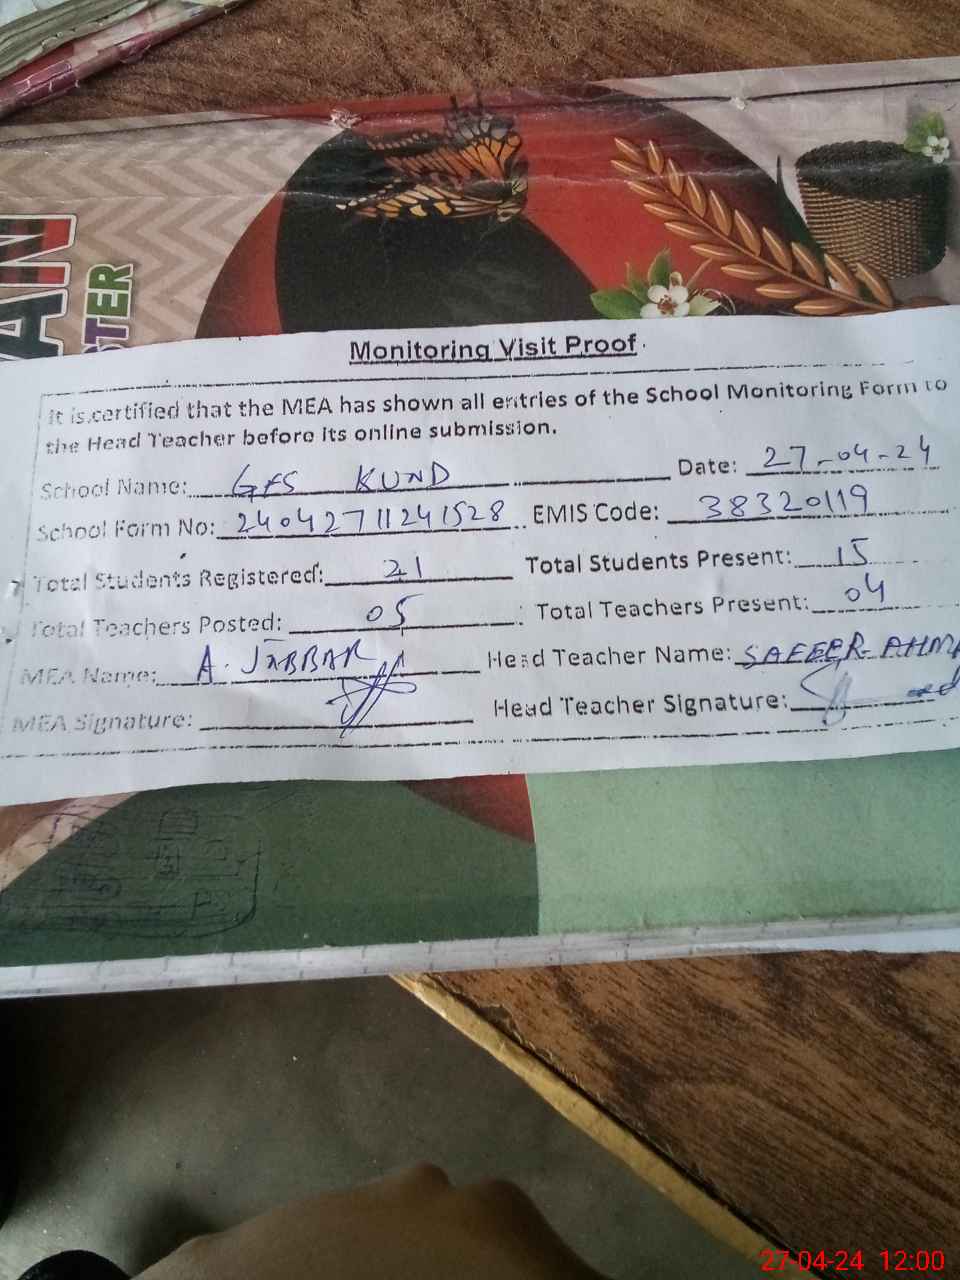 AIN
STER
Monitoring Visit Proof
It is certified that the MEA has shown all entries of the School Monitoring Form to
the Head Teacher before its online submission.
School Name: GES KUND Date: 27-04-24
School Form No: 24042711241528 EMIS Code: 38320119
Total Students Registered: 21 Total Students Present: 15
Total Teachers Posted: 05 Total Teachers Present: 04
MEA Name: A. JABBAR Head Teacher Name: SAFEER AHM
MEA Signature: Head Teacher Signature: ed
27-04-24 12:00